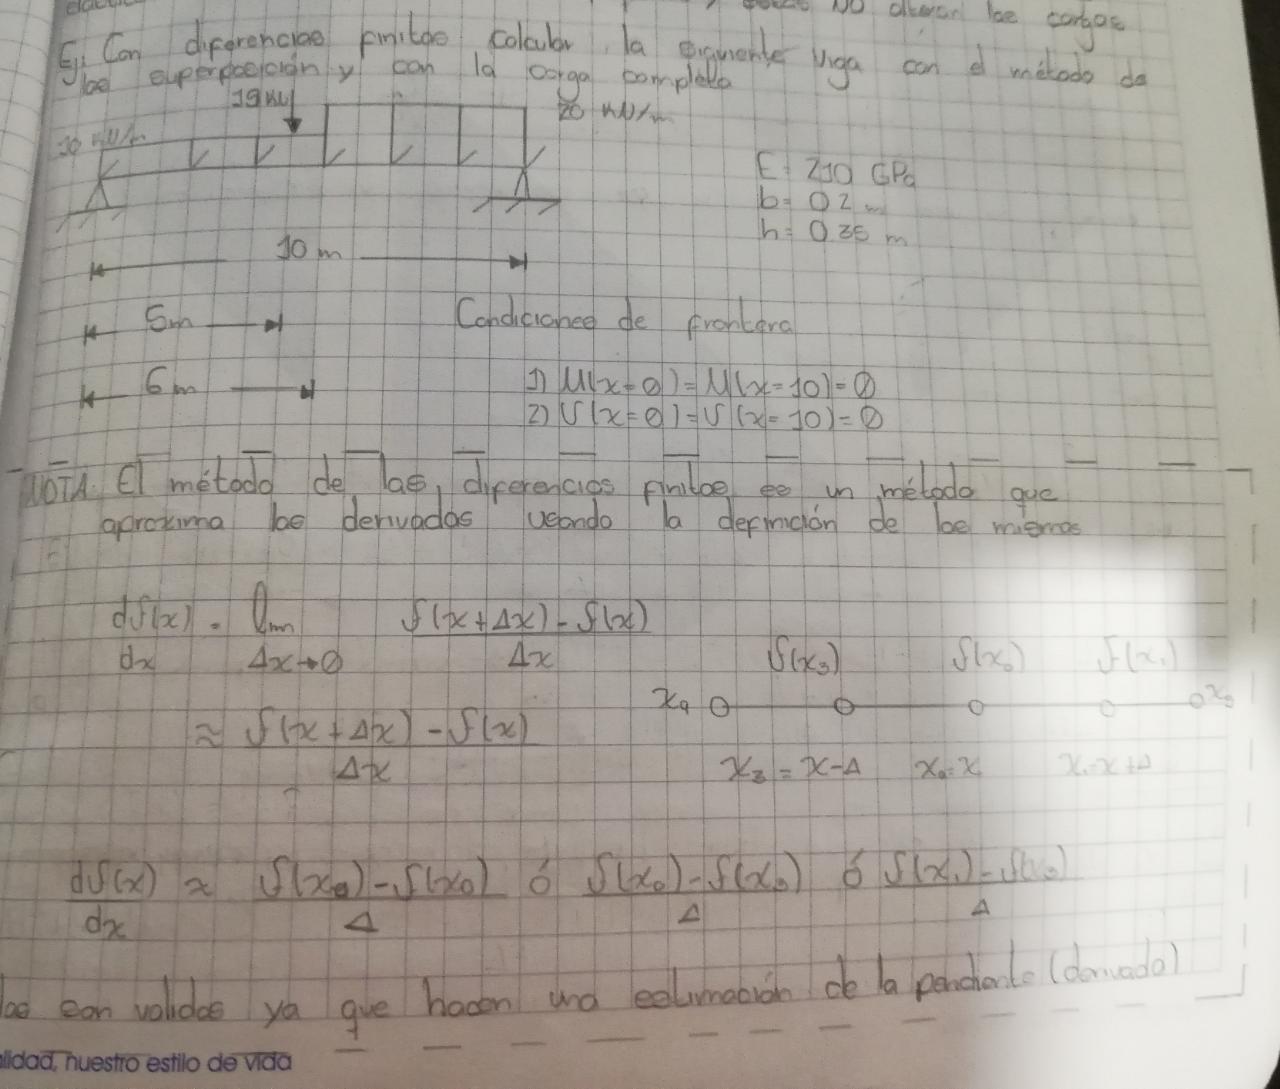 NO alteran las cargas
Ej. Con diferencias finitas calcular la siguiente viga con el método de
las superposición y con la carga completa
19 kN
10 kN/m
20 kN/m
E= 210 GPa
b= 0.2 m
h= 0.35 m
10 m
5m
Condiciones de frontera
6m
1) M(x=0)=M(x=10)=0
2) V(x=0)=V(x=10)=0
NOTA: El método de las diferencias finitas es un método que
aproxima las derivadas usando la definición de las mismas
df(x) = lim f(x+Δx)-f(x)
dx Δx→0 Δx
f(x₃) f(x₀) f(x₁)
x₄
≈ f(x+Δx)-f(x)
Δx
x₃=x-Δ x₀=x x₁=x+Δ
df(x) ≈ f(x₀)-f(x₀) ó f(x₀)-f(x₃) ó f(x₁)-f(x₃)
dx Δ Δ Δ
son validas ya que hacen una estimación de la pendiente (derivada)
lidad, nuestro estilo de vida